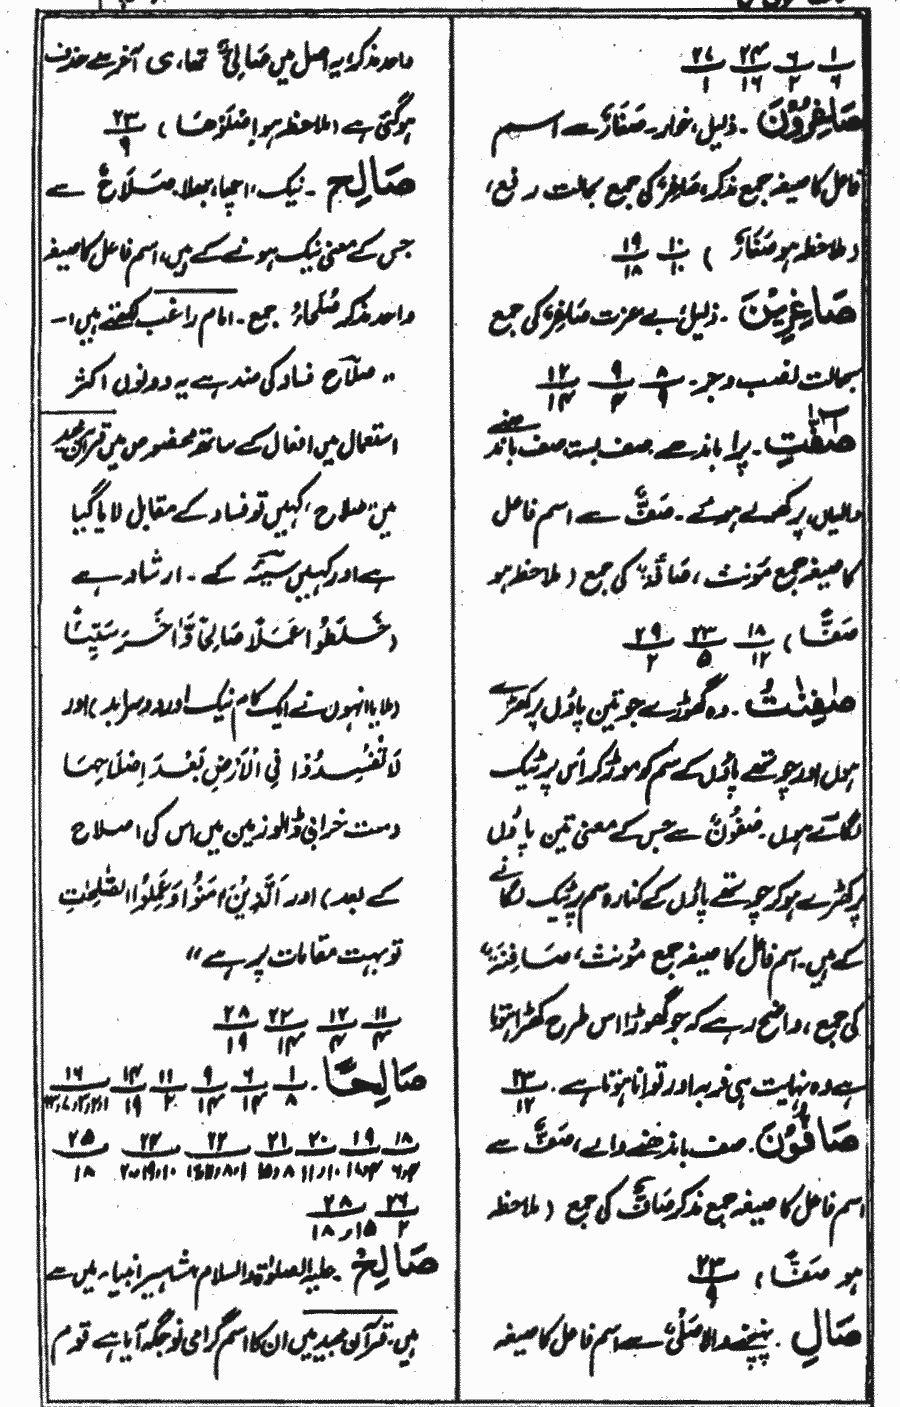 ۱/۶ ۶/۲ ۲۴/۱۶ ۲۷/۱
صَاغِرُوْنَ ۔ ذلیل، خوار۔ صَغَارٌ سے اسم
فاعل کا صیغہ جمع مذکر، صَاغِرٌ کی جمع بحالت رفع،
(ملاحظہ ہو صَغَارٌ) ۱۰/۱۰ ۱۹/۱۸
صَاغِرِیْنَ ۔ ذلیل، بے عزت صَاغِرٌ کی جمع
بحالت نصب و جر۔ ۸/۹ ۹/۴ ۱۲/۱۴
صٰٓفّٰتِ ۔ پرا باندھے صف بستہ صف باندھنے
والیاں، پر کھولے ہوئے ۔ صَفٌّ سے اسم فاعل
کا صیغہ جمع مؤنث، صَافَّۃٌ کی جمع (ملاحظہ ہو
صَفًّا) ۱۸/۱۲ ۲۳/۵ ۲۹/۲
صٰفِنٰتُ ۔ وہ گھوڑے جو تین پاؤں پر کھڑے
ہوں اور چوتھے پاؤں کے سُم کو موڑ کر اُس پر ٹیک
لگائے ہوں۔ صُفُوْنٌ سے جس کے معنی تین پاؤں
پر کھڑے ہو کر چوتھے پاؤں کے کنارہ سم پر ٹیک لگانے
کے ہیں۔ اسم فاعل کا صیغہ جمع مؤنث، صَافِنَۃٌ
کی جمع، واضح رہے کہ جو گھوڑا اس طرح کھڑا ہوتا
ہے وہ نہایت ہی فربہ اور توانا ہوتا ہے۔ ۲۳/۱۲
صَافُّوْنَ ۔ صف باندھنے والے، صَفٌّ سے
اسم فاعل کا صیغہ جمع مذکر صَافٌّ کی جمع (ملاحظہ
ہو صَفًّا) ۲۳/۹
صَالِ ۔ پہنچنے والا صَلْیٌ سے اسم فاعل کا صیغہ
واحد مذکر، یہ اصل میں صَالِیٌ تھا، ی آخر سے حذف
ہوگئی ہے (ملاحظہ ہو اِصْلَوْهَا) ۲۳/۹
صَالِحٍ ۔ نیک، اچھا، بھلا۔ صَلَاحٌ سے
جس کے معنی نیک ہونے کے ہیں، اسم فاعل کا صیغہ
واحد مذکر صُلَحَاءُ جمع ۔ امام راغب لکھتے ہیں :۔
،، صلاح فساد کی ضد ہے یہ دونوں اکثر
استعمال میں افعال کے ساتھ مخصوص میں قرآن مجید
میں صلاح، کہیں تو فساد کے مقابل لایا گیا
ہے اور کہیں سَیِّئَہ کے ۔ ارشاد ہے
(خَلَطُوْا عَمَلًا صَالِحًا وَّاٰخَرَ سَیِّئًا
(ملایا انہوں نے ایک کام نیک اور دوسرا بد) اور
لَا تُفْسِدُوْا فِی الْاَرْضِ بَعْدَ اِصْلَاحِهَا
(مت خرابی ڈالو زمین میں اس کی اصلاح
کے بعد) اور اَلَّذِیْنَ اٰمَنُوْا وَعَمِلُوا الصّٰلِحٰتِ
تو بہت مقامات پر ہے ،،
۱۱/۴ ۱۲/۴ ۲۲/۱۴ ۲۸/۱۹
صَالِحًا ۔ ۱/۸ ۶/۱۴ ۹/۱۴ ۱۱/۲ ۱۴/۱۹
۲۶/۲ ۲۸/۱۵،۱۸
صَالِحٌ ۔ علیہ الصلوٰۃ والسلام مشاہیر انبیاء میں سے
ہیں۔ قرآن مجید میں ان کا اسم گرامی نو جگہ آیا ہے قوم